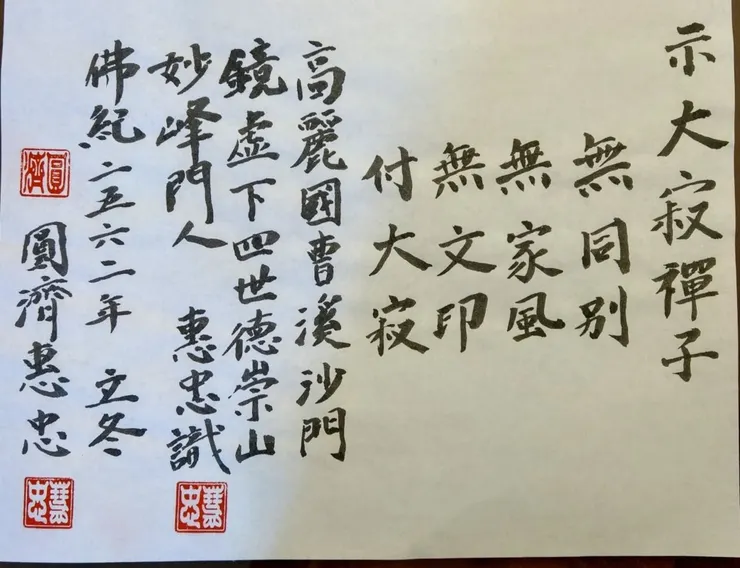 示大寂禪子
無同别
無家風
無文印
付大寂
高麗國曹溪沙門
鏡虛下四世德崇山
妙峰門人 惠忠識
佛紀二五六二年 立冬
圓濟
圓濟惠忠